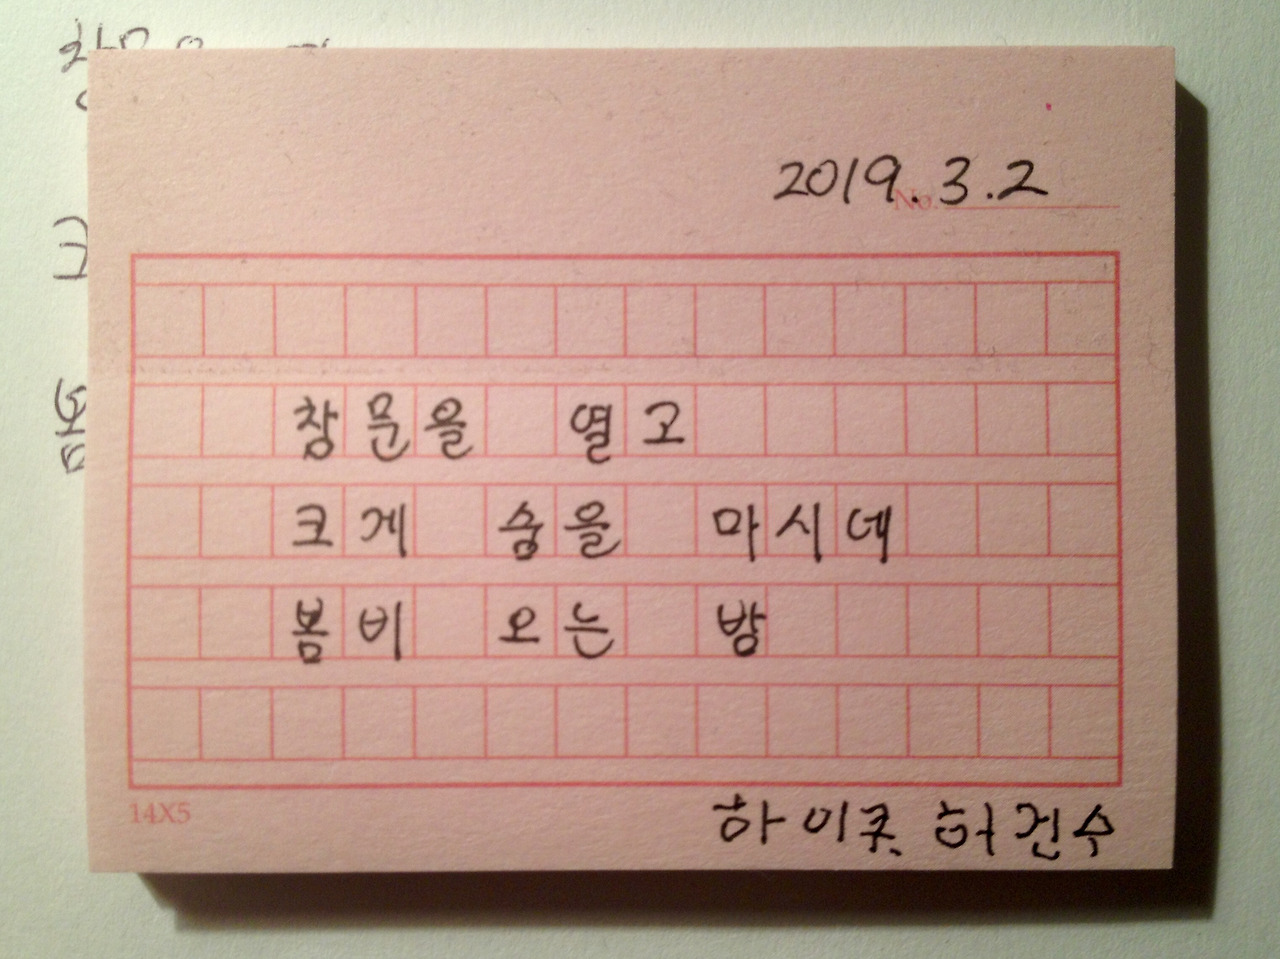 2019.3.2
No.
창문을 열고
크게 숨을 마시네
봄비 오는 밤
14X5
하이쿠 허건수